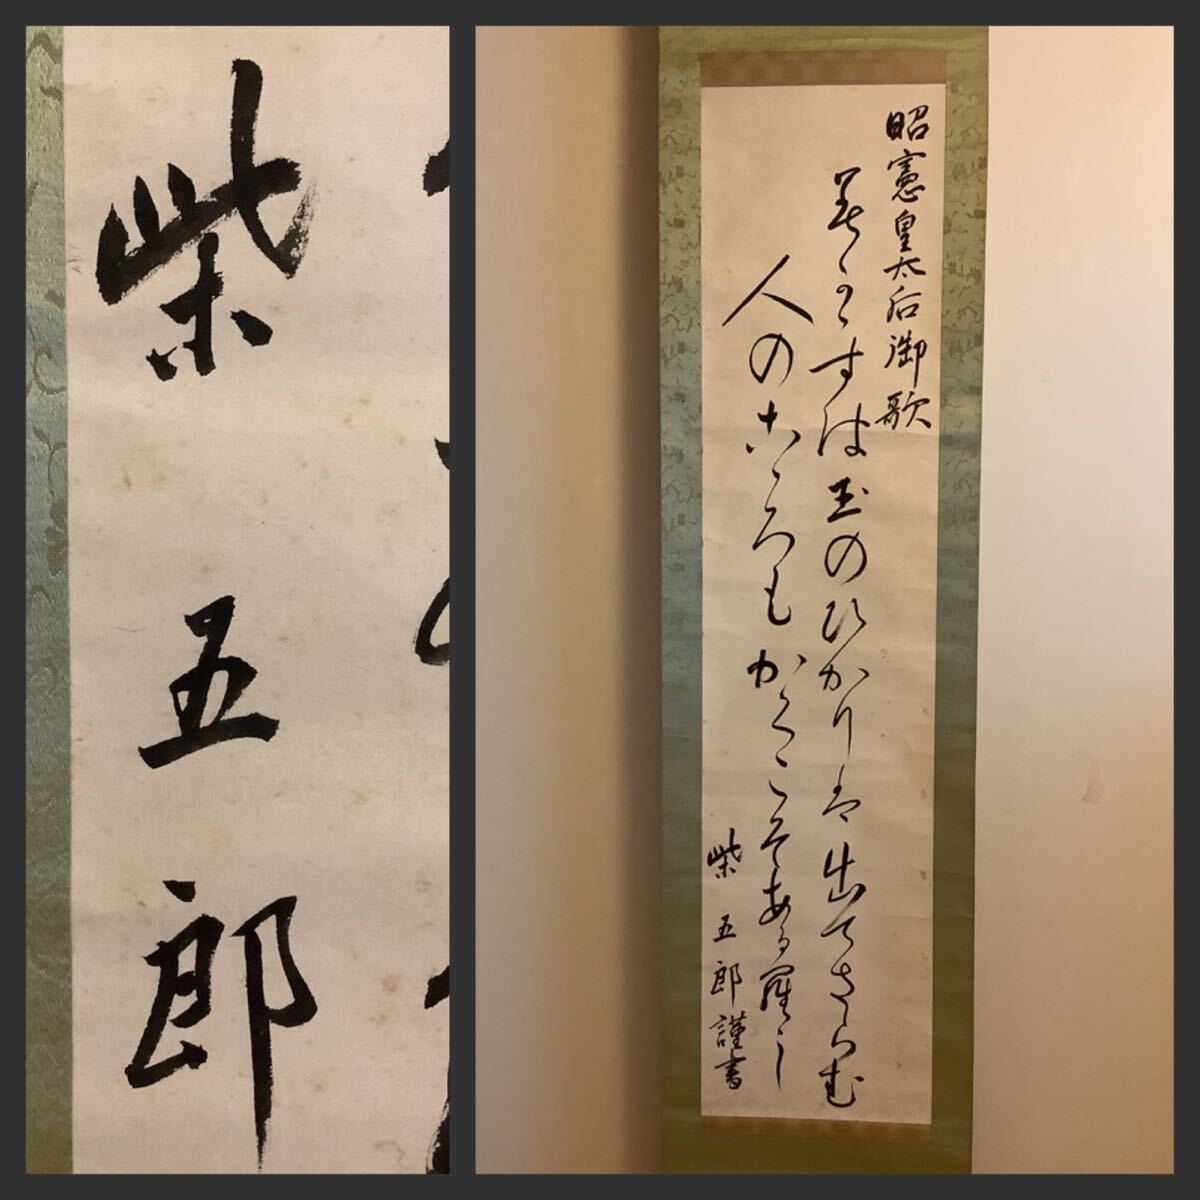 柴五郎
昭憲皇太后御歌
美かゝすは玉のひかりは出てさらむ
人のこゝろもかくこそある羅し
柴五郎謹書